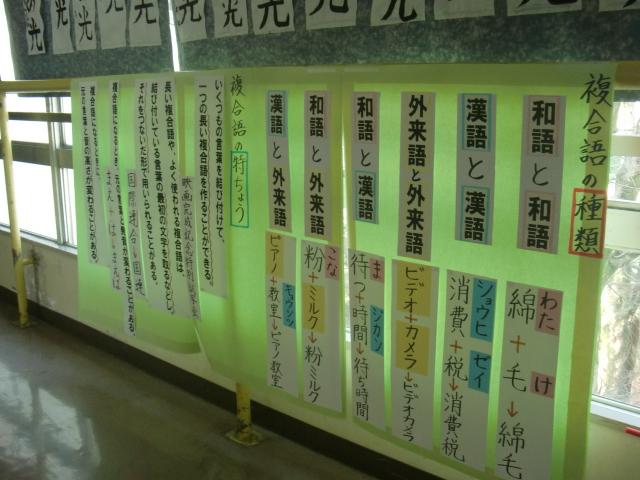 光
光
光
光
光
光
複合語の種類
和語と和語
わた け
綿+毛→綿毛
漢語と漢語
ショウヒ ゼイ
消費+税→消費税
外来語と外来語
ビデオ+カメラ→ビデオカメラ
和語と漢語
ま ジカン
待つ+時間→待ち時間
和語と外来語
こな
粉+ミルク→粉ミルク
漢語と外来語
キョウシツ
ピアノ+教室→ピアノ教室
複合語の特ちょう
いくつもの言葉を結び付けて、
一つの長い複合語を作ることができる。
長い複合語や、よく使われる複合語は、
結び付いている言葉の最初の文字を取るなどし、
それをつないだ形で用いられることがある。
国際連合→国連
複合語になるとき、元の言葉と発音が変わることがある。
複合語になるときに、
元の言葉と音の高さが変わることがある。